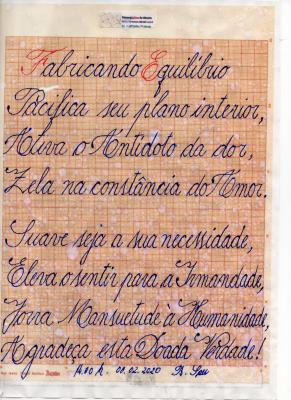 Fabricando Equilíbrio
Pacifica seu plano interior,
Ativa o Antídoto da dor,
Zela na constância do Amor.
Suave seja a sua necessidade,
Eleva o sentir para a Irmandade,
Jorra Mansuetude à Humanidade,
Agradeça esta Doada Verdade!
14:00 h. 08.02.2020